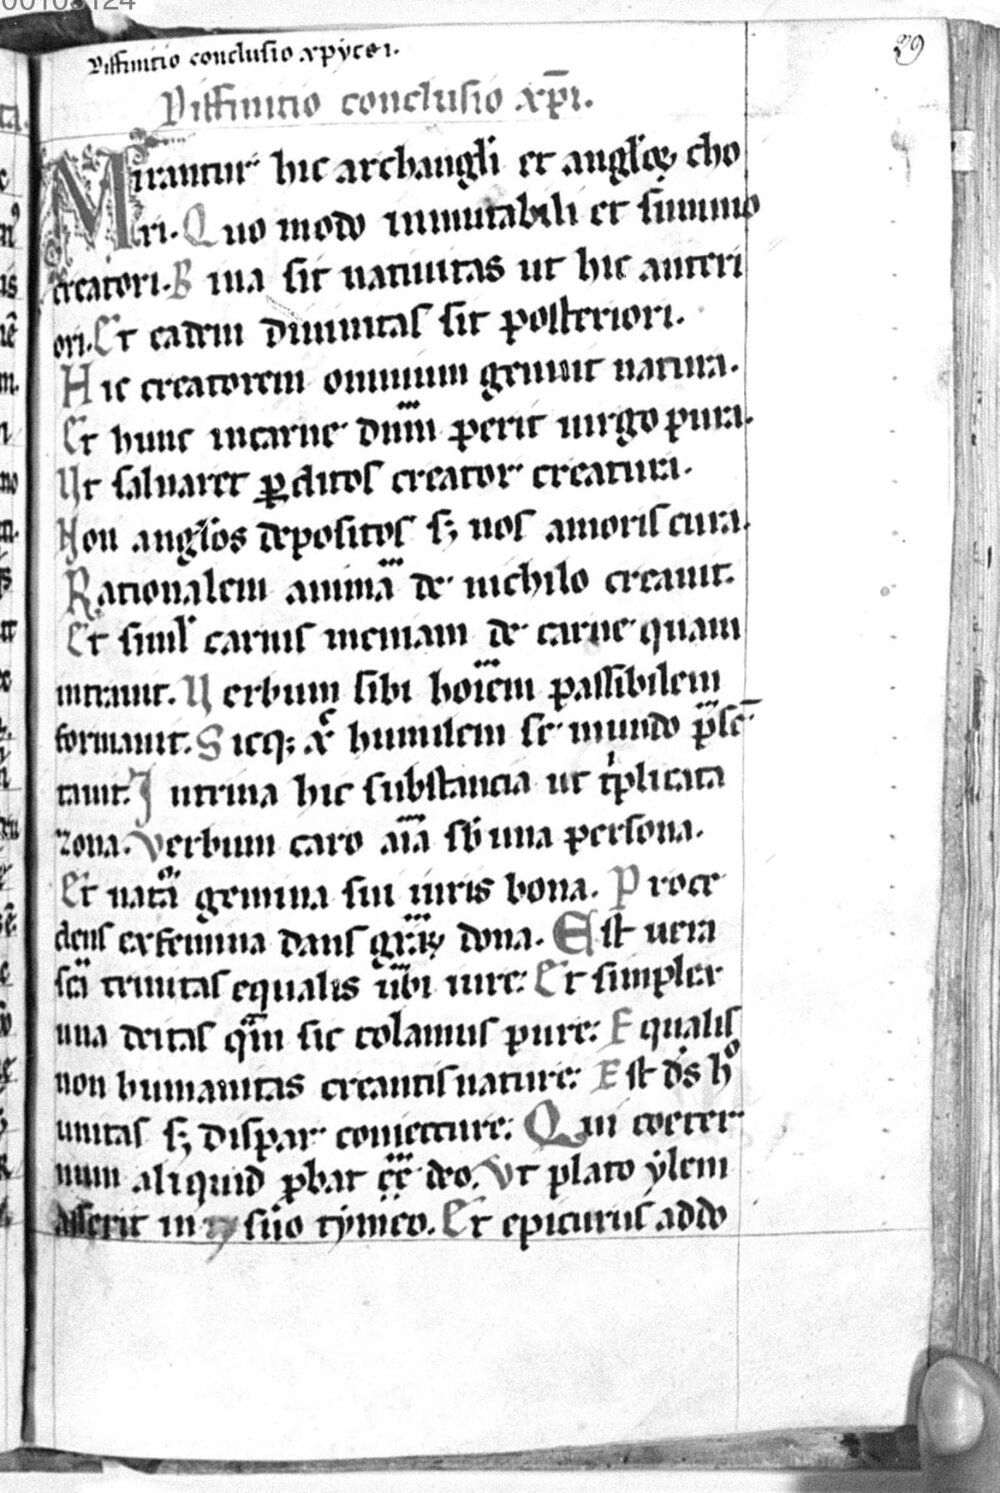 00103124
29
Diffinitio conclusio xpycei.
Diffinitio conclusio xp̄i.
Mirantur hic archangl̄i et angl̄oꝝ cho
ri. Quo modo inmutabili et sūmo
creatori. Bina sit natiuitas ut hic anteri
ori. Et eadem diuinitas sit posteriori.
Hic creatorem omnium genuit natura.
Et hunc incarne dn̄m peperit uirgo pura.
Ut saluaret ꝑditos creator creatura.
Non angl̄os depositos sꝫ nos amoris cura.
Rationalem animā de nichilo creauit.
Et simul carnis meniam de carne quam
intrauit. Uerbum sibi hoīem passibilem
formauit. Sicqꝫ xp̄ humilem se mundo p̄sē
tauit. In trina hic substancia ut tͥplicata
zona. Verbum caro aīa sb̄ una persona.
Et natͣ gemina sui iuris bona. Proce
dens ex femina dans grāꝝ dona. Est uera
scā trinitas equalis ubi iure. Et simplex
una deitas quā sic colamus pure. Equalis
non humanitas creantis nature. Est ds̄ hͦ
unitas sꝫ dispar coniecture. Qui coeter
num aliquid ꝓbat ēē deo. Vt plato ylem
disserit in suo tymeo. Et epicurus addo